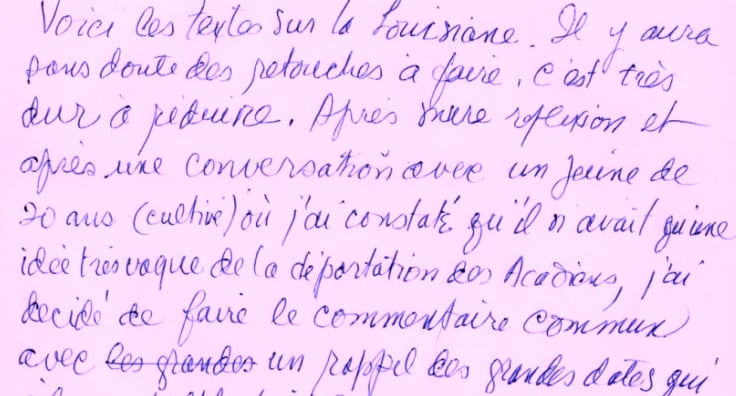 Voici les textes sur la Louisiane. Il y aura
sans doute des retouches à faire. C'est très
dur à réduire. Après mure réflexion et
après une conversation avec un jeune de
20 ans (cultivé) où j'ai constaté qu'il n'avait qu'une
idée très vague de la déportation des Acadiens, j'ai
décidé de faire le commentaire commun
avec les grandes un rappel des grandes dates qui